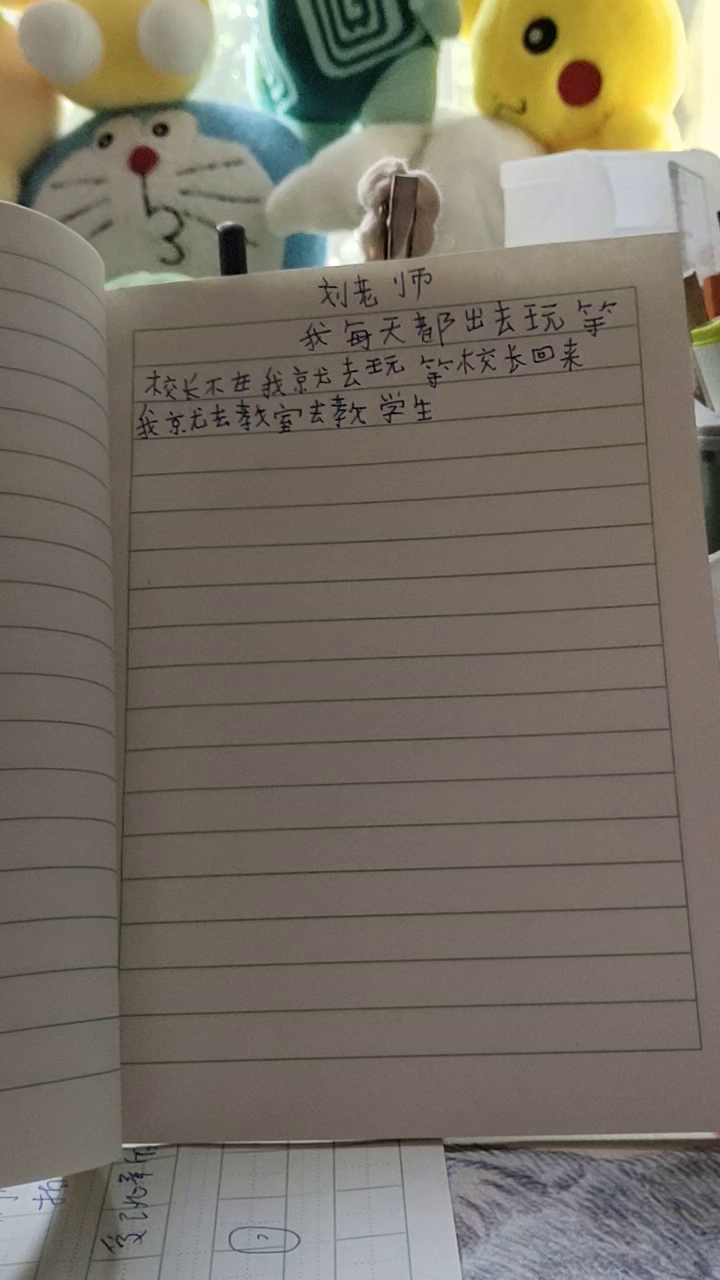 刘老师
我每天都出去玩等
校长不在我就去玩等校长回来
我就去教室去教学生